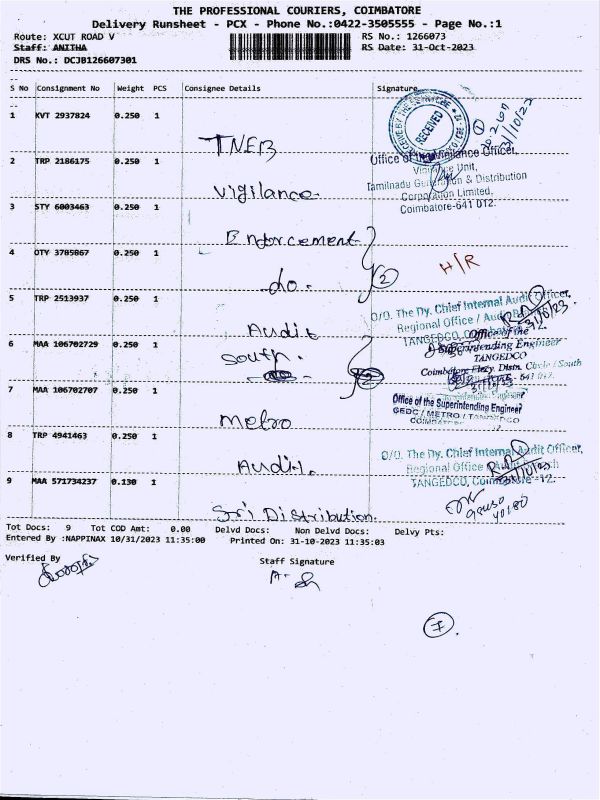 THE PROFESSIONAL COURIERS, COIMBATORE
Delivery Runsheet - PCX - Phone No.:0422-3505555 - Page No.:1
Route: XCUT ROAD V RS No.: 1266073
Staff: ANITHA RS Date: 31-Oct-2023
DRS No.: DCJB126607301
S No Consignment No Weight PCS Consignee Details Signature
1 KVT 2937824 0.250 1
RECEIVED
31/10/23
TNEB
2 TRP 2186175 0.250 1
Office of the Vigilance Officer,
Vigilance Unit,
Tamilnadu Generation & Distribution
Vigilance
Corporation Limited,
3 STY 6003463 0.250 1
Coimbatore-641 012.
Enforcement
4 OTY 3785867 0.250 1
H/R
do. 2
5 TRP 2513937 0.250 1
O/O. The Dy. Chief Internal Audit Officer,
Regional Office / Audit Branch
Audit
TANGEDCO, Coimbatore-12.
6 MAA 106702729 0.250 1
Office of the
Superintending Engineer
TANGEDCO
South. 2
Coimbatore Elecy. Distn. Circle / South
7 MAA 106702707 0.250 1
Office of the Superintending Engineer
GEDC / METRO / TANGEDCO
Metro
8 TRP 4941463 0.250 1
O/O. The Dy. Chief Internal Audit Officer,
Regional Office / Audit Branch
Audit.
TANGEDCO, Coimbatore-12.
9 MAA 571734237 0.130 1
Sri Distribution.
Tot Docs: 9 Tot COD Amt: 0.00 Delvd Docs: Non Delvd Docs: Delvy Pts:
Entered By :NAPPINAX 10/31/2023 11:35:00 Printed On: 31-10-2023 11:35:03
Verified By Staff Signature
7.